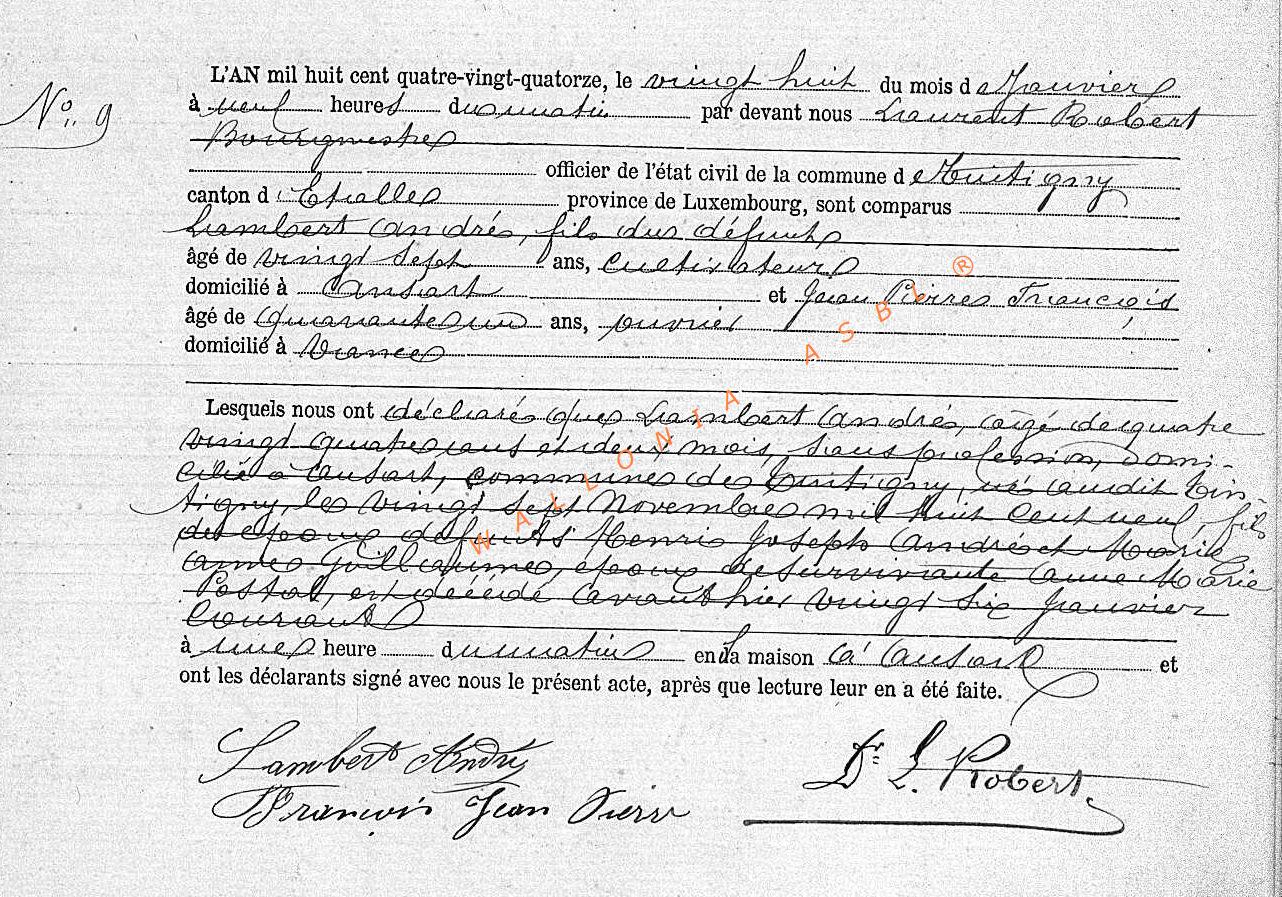 L'AN mil huit cent quatre-vingt-quatorze, le vingt huit du mois de Janvier
N° 9
à neuf heures du matin par devant nous Laurent Robert
Bourgmestre
officier de l'état civil de la commune de Tintigny
canton d'Etalle province de Luxembourg, sont comparus
Lambert André, fils du défunt
âgé de vingt sept ans, cultivateur
domicilié à Ansart et Jean Pierre François
âgé de quarante un ans, ouvrier
domicilié à
Lesquels nous ont déclaré que Lambert André, âgé de quatre
vingt quatre ans et deux mois, sans profession, domi-
cilié à Ansart, commune de Tintigny, né audit Tin-
tigny, le vingt sept Novembre mil huit cent neuf, fils
des époux défunts Henri Joseph André et Marie
Anne Guillaume, époux de survivante Anne Marie
Postal, est décédé avant hier vingt six Janvier
courant
à une heure du matin en la maison à Ansart et
ont les déclarants signé avec nous le présent acte, après que lecture leur en a été faite.
Lambert André
François Jean Pierre
Dr L. Robert
WALLONIA ASBL ®